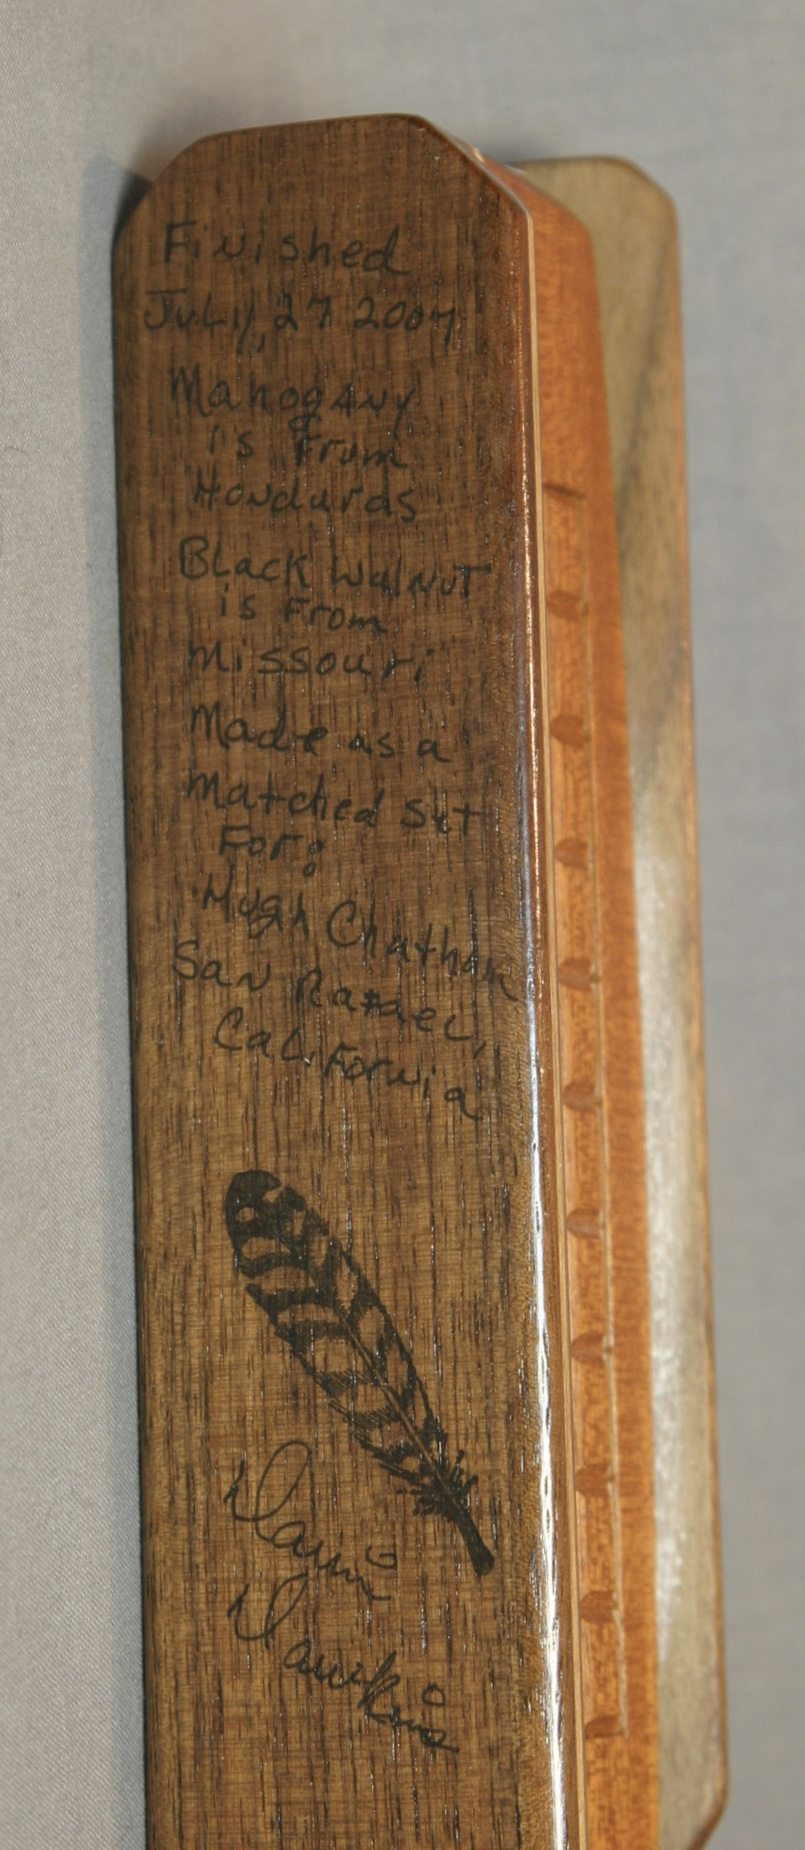 Finished
July, 27 2007
Mahogany
is From
Honduras
Black Walnut
is From
Missouri
Made as a
Matched Set
For:
Hugh Chatham
San Rafael,
California
Darin
Dawkins